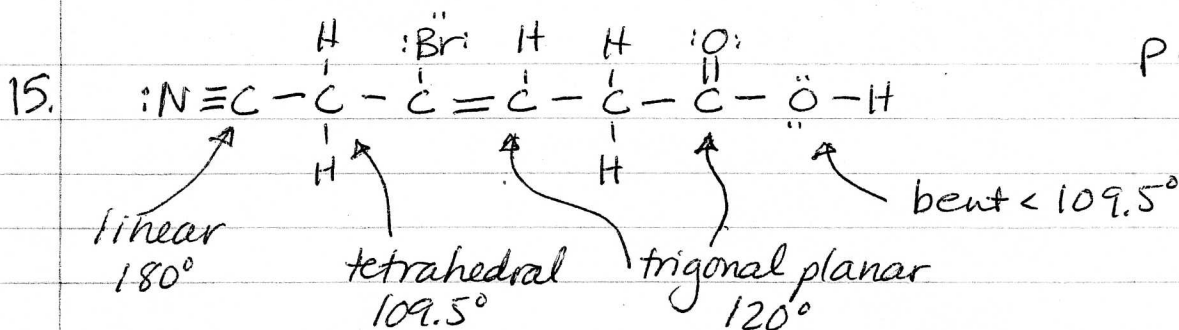 H :B̈r: H H :O:
P
15. :N≡C - C - C = C - C - C - Ö - H
H H
linear
180°
tetrahedral
109.5°
trigonal planar
120°
bent < 109.5°